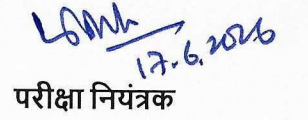 17.6.2026
परीक्षा नियंत्रक